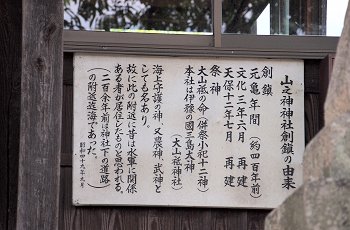 山之神神社創鎮の由来
創鎮
元亀年間（約四百年前）
文化三年六月　再建
天保十二年七月　再建
祭神
大山祇の命　併祭小祀十二神
本社は伊豫の國三島大神
（大山祇神社）
海上守護の神、又農神、武神と
しても名あり。
故に此の附近に昔は水軍に関係
ある者が居住したものと思われる。
（二百余年前は神社下の道路
の附近迄海であった。）
昭和四十八年九月